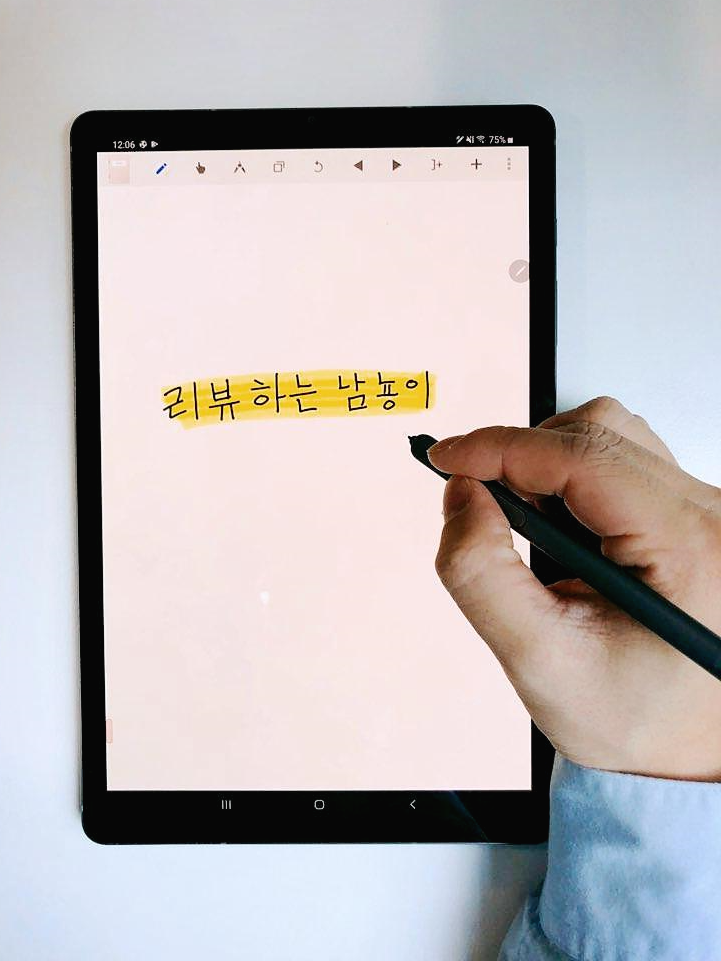 12:06 75%
리뷰하는 남뇽이